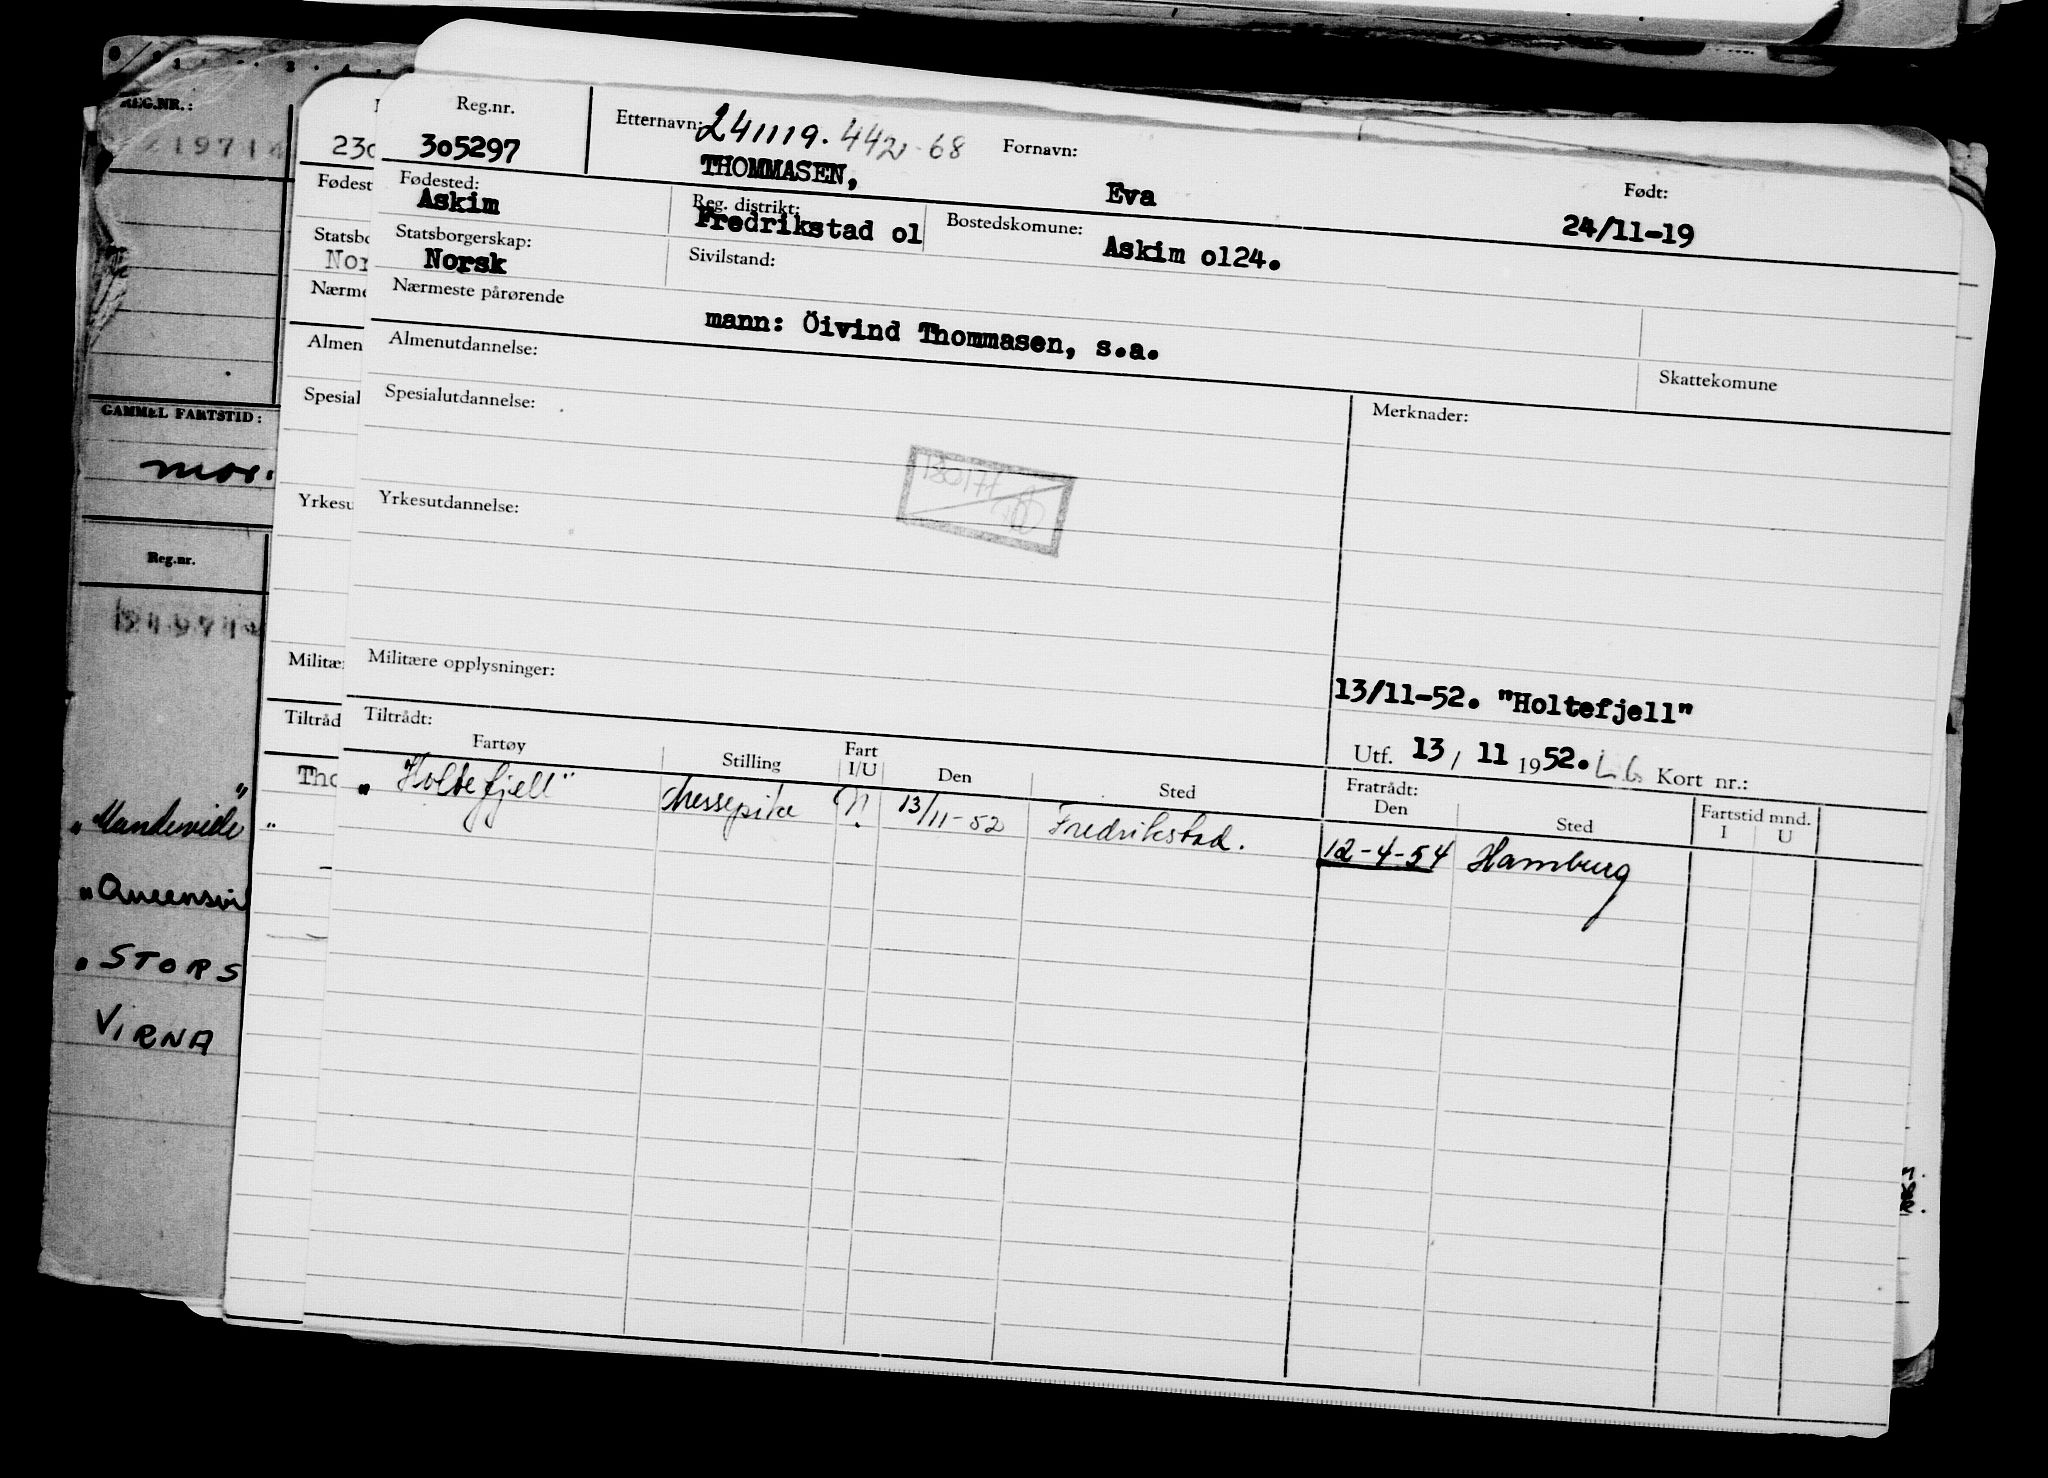 REG.NR.:
GAMMEL FARTSTID:
mor.
Reg.nr.
"Mandeville"
"Queensvi
"STORS
VIRNA
230
Fødest
Statsbo
Nor
Nærme
Almen
Spesial
Yrkesu
Militæ
Tiltråd
Tho
Reg.nr. 305297
Etternavn: 241119. 442 68
THOMMASEN,
Fornavn: Eva
Født: 24/11-19
Fødested: Askim
Reg. distrikt: Fredrikstad o1
Bostedskomune: Askim o124.
Statsborgerskap: Norsk
Sivilstand:
Nærmeste pårørende
mann: Öivind Thommasen, s.a.
Skattekomune
Almenutdannelse:
Merknader:
Spesialutdannelse:
Yrkesutdannelse:
Militære opplysninger:
13/11-52. "Holtefjell"
Utf. 13 / 11 1952. Kort nr.:
Tiltrådt:
Fratrådt:
Fartøy Stilling Fart I/U Den Sted Den Sted Fartstid mnd. I U
"Holtefjell" Messepike N. 13/11-52 Fredrikstad. 12-4-54 Hamburg